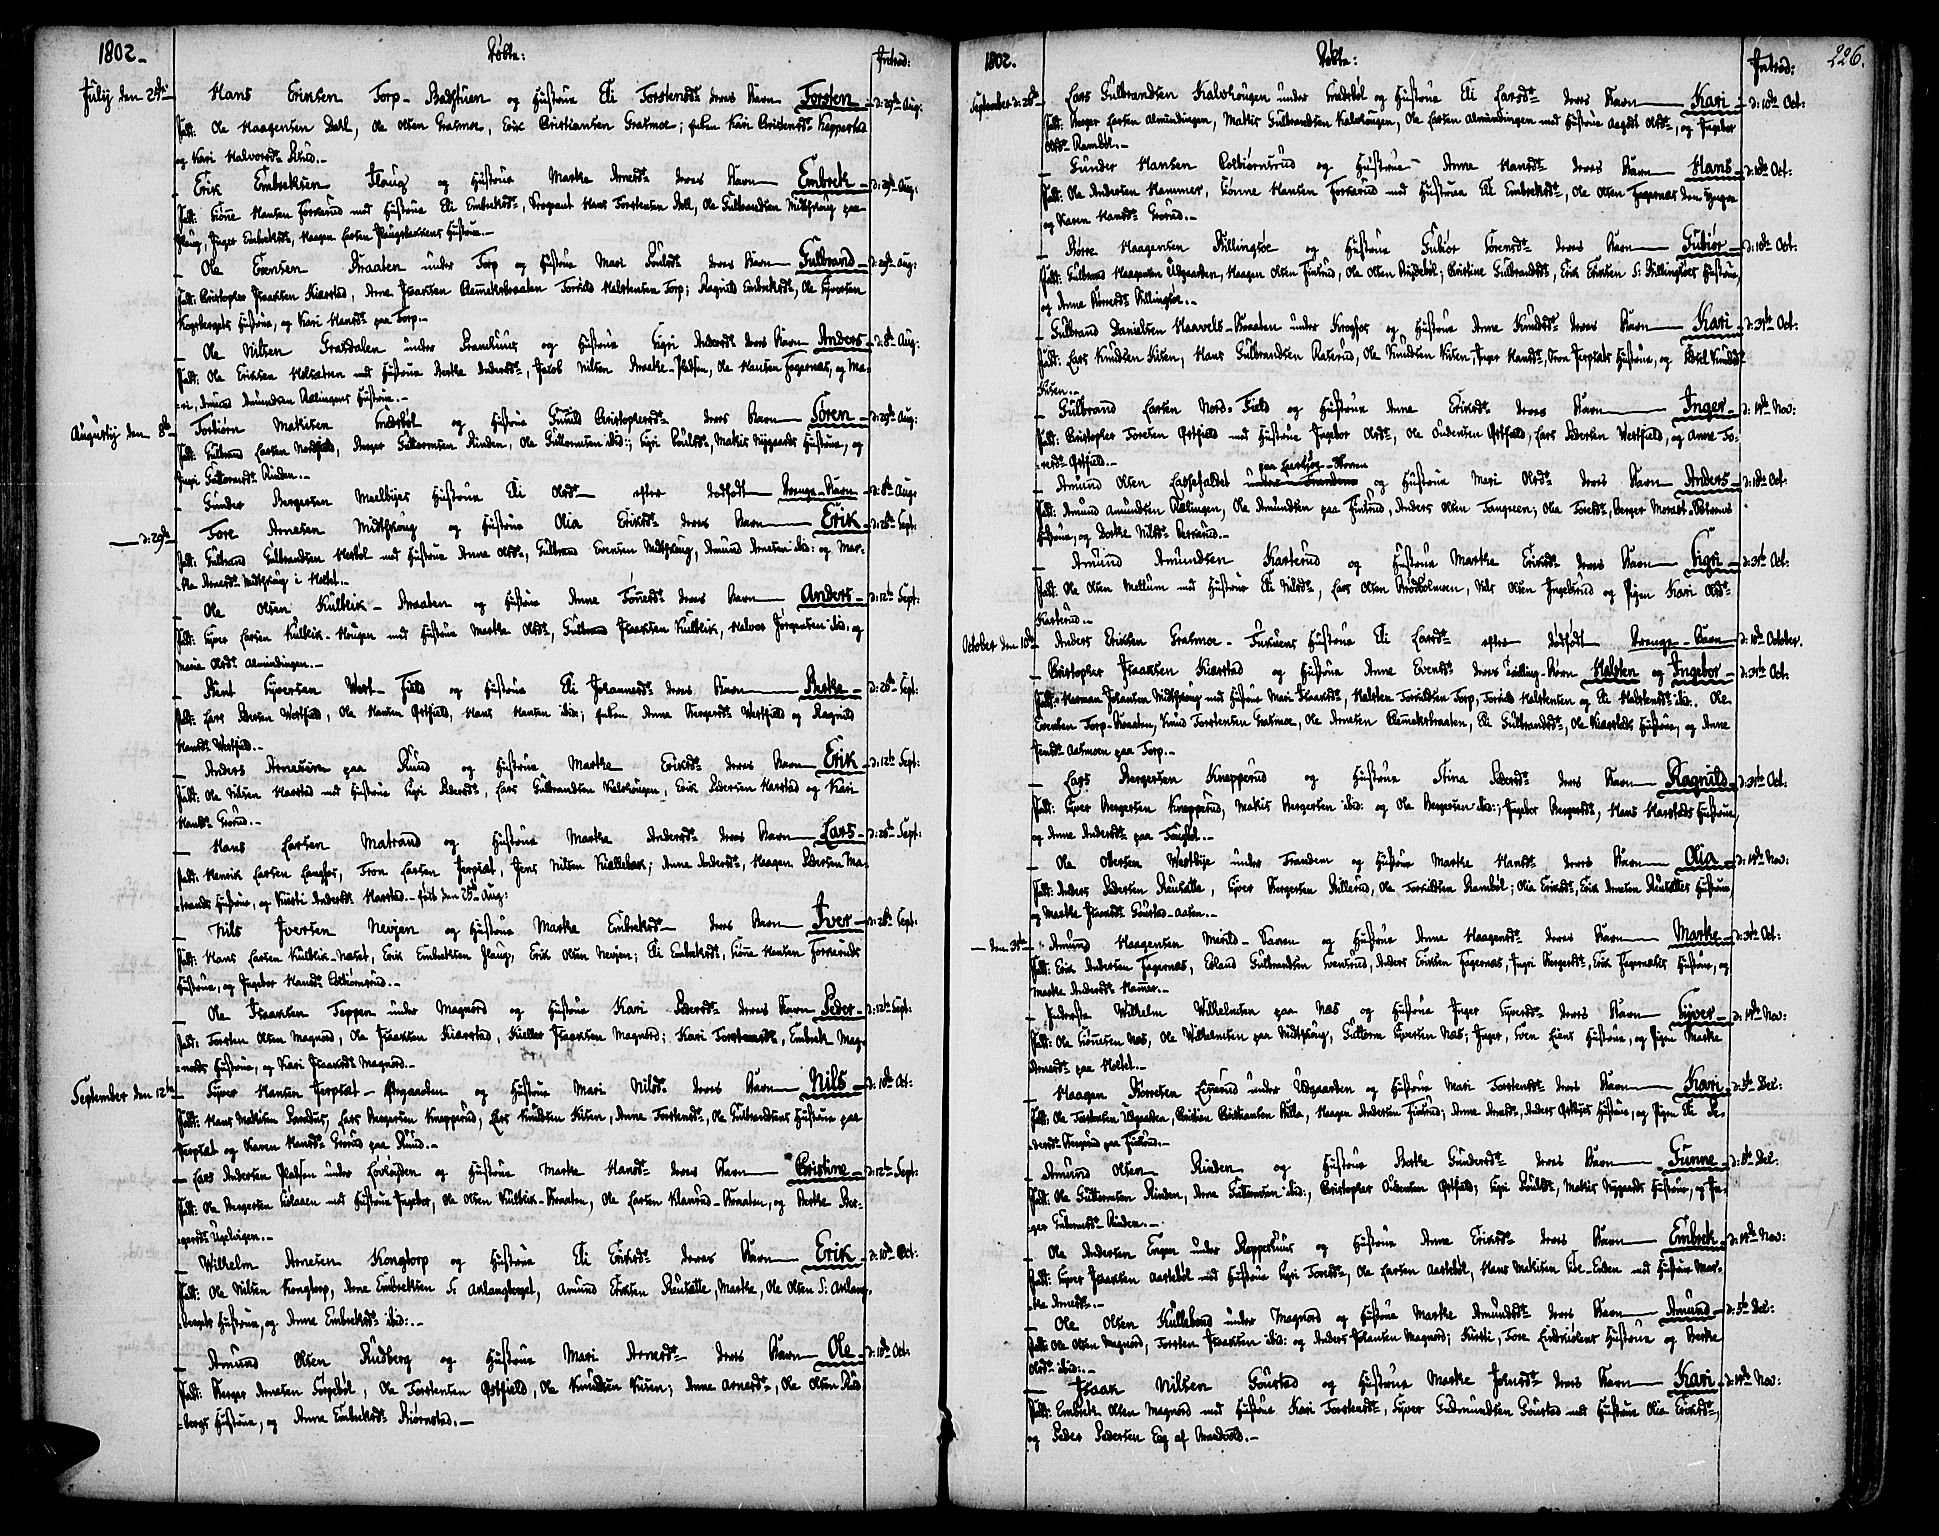 1802.
Døbte:
Introd:
July den 25de Hans Eriksen Torp - Badstuen og Hustrue Eli Torstensdr deres Barn Torsten d: 29de Aug:
Fadd: Ole Haagensen Dahl, Ole Olsen Gratmoe, Erik Christiansen Gratmoe; Kari Christensdr Kapperstad
og Kari Halvorsdr
Erik Embreksen Plaug og Hustrue Marthe Arnesdr deres Barn Embrek d: 29de Aug:
Fadd: Hansen Forrerud med Hustrue Eli Embreksdr, Sergeant Hans Torstensen Dahl, Ole Gulbrandsen Midtskoug paa
Plaug, Inger Embreksdr, Haagen Larsen Hustrue.
Ole Evensen Braaten under Torp og Hustrue Mari Poulsdr deres Barn Gulbrand d: 29de Aug:
Fadd: Christopher Isaaksen Kierstad, Arne Isaaksen Torkild Halstensen Torp; Ragnild Embreksdr, Ole Syversen
Hustrue, og Kari Hansdr paa Torp.
Ole Nilsen Gransdalen under og Hustrue Sigri Andersdr deres Barn Anders d: 8de Aug:
Fadd: Ole Eriksen med Hustrue Berthe Andersdr, Jacob Nilsen Braate-Pladsen, Ole Hansen Fagernæs, og Ma-
ri, Amund Amundsen Rællingens Hustrue.
Augusty den 8de Torbiørn Mathisen og Hustrue Gunild Christophersdr deres Barn Søren d: 29de Aug:
Fadd: Gulbrand Larsen Nordfield, Asmer Guttormsen Rinden, Ole Guttormsen ibid:, Sigri Poulsdr, Mathis Nygaards Hustrue, og
Inger Guttormsdr Rinden.
Gunder Bergersen Hustrue Eli Olsdr efter dødfødt Drenge-Barn d: 8de Aug:
d: 29de Tore Arnesen Midtskoug og Hustrue Olia Eriksdr deres Barn Erik d: 26de Sept:
Fadd: Gulbrand Gulbrandsen med Hustrue Anne Olsdr, Gulbrand Evensen Midtskoug, Amund Arnesen ibid: og Mar-
the Arnesdr Midtskoug i Holtet.
Ole Olsen Kulblik-Braaten og Hustrue Anne Tønesdr deres Barn Anders d: 12te Sept:
Fadd: Syver Larsen Kulblik-Hougen med Hustrue Marthe Olsdr, Gulbrand Isaaksen Kulblik, Halvor Jørgensen ibid: og
Maria Olsdr Almindingen.
Syversen West-Field og Hustrue Eli Johannesdr deres Barn Berthe d: 26de Sept:
Fadd: Lars Pedersen Westfield, Ole Hansen Østfield, Hans Hansen ibid; Anne Bergersdr Westfield og Ragnild
Hansdr Westfield.
Anders Arnesen paa Rund og Hustrue Marthe Eriksdr deres Barn Erik d: 12te Sept:
Fadd: Ole Nilsen Harstad med Hustrue Sigri Pedersdr, Lars Gulbrandsen Kalvhougen, Erik Pedersen Harstad og Kari
Hansdr Grorud.
Hans Larsen Matrand og Hustrue Marthe Andersdr deres Barn Lars d: 26de Sept:
Fadd: Henrik Larsen Langfos, Tron Larsen Jerpsæt, Jens Nilsen Kiellebæk; Anne Andersdr, Haagen Pedersen Ma-
trands Hustrue, og Kirsti Andersdr Harstad. født den 25de Aug:
Nils Iversen Nevjen og Hustrue Marthe Embreksdr deres Barn Iver d: 26de Sept:
Fadd: Hans Larsen Kulblik-Næset, Erik Embreksen Plaug, Erik Olsen Nevjen; Eli Embreksdr, Hansen Forreruds
Hustrue, og Ingebor Hansdr Colbiørnsrud.
Ole Isaaksen Teppen under Magnord og Hustrue Kari Pedersdr deres Barn Peder d: 12te Sept:
Fadd: Torsten Olsen Magnord, Ole Isaaksen Kierstad, Kield Isaaksen Magnord; Kari Torstensdr, Embrek Mag-
nords Hustrue, og Kari Isaaksdr Magnord.
September den 12te Syver Hansen Jerpsæt-Øvgaarden og Hustrue Mari Nilsdr deres Barn Nils d: 10de Oct:
Fadd: Hans Mathisen, Lars Bergersen Knapperud, Lars Knudsen Kilen, Anne Torstensdr, Ole Gulbrandsens Hustrue paa
Jerpsæt og Karen Hansdr Grorud paa Rund.
Lars Andersen Pladsen under og Hustrue Marthe Hansdr deres Barn Christine d: 12te Sept:
Fadd: Ole Bergersen med Hustrue Ingebor, Ole Olsen Kulblik-Braaten, Ole Larsen Klanrud-Braaten, og Berthe Ber-
gersdr Ugelvigen.
Wilhelm Arnesen Kongtorp og Hustrue Eli Eriksdr deres Barn Erik d: 10de Oct:
Fadd: Ole Nilsen Kongtorp, Arne Embreksen S: Aklangberget, Amund Eriksen Reuhatte, Marthe, Ole Olsen S: Aklang-
bergets Hustrue, og Anne Embreksdr ibid:.
Amund Olsen Rudberg og Hustrue Mari Arnesdr deres Barn Ole d: 10de Oct:
Fadd: Berger Arnesen Sørpebøl, Ole Torstensen Østfield, Ole Knudsen Kilen; Anne Arnesdr, Ole Olsen Rud-
bergs Hustrue, og Anne Embreksdr Biørnstad.
1802.
Døbte:
Introd:
226.
September d: 26de Lars Gulbrandsen Kalvhougen under og Hustrue Eli Larsdr deres Barn Kari d: 10de Oct:
Fadd: Berger Larsen Almindingen, Mathis Gulbrandsen Kalvhougen, Ole Larsen Almindingen med Hustrue Aagot Olsdr, og Ingebor
Olsdr Rambøl.
Gunder Hansen Colbiørnsrud og Hustrue Anne Hansdr deres Barn Hans d: 10de Oct:
Fadd: Ole Andersen Hammer, Hansen Forrerud med Hustrue Eli Embreksdr, Ole Olsen Fagernæs den yngre
og Karen Hansdr Grorud.
Børre Haagensen Killingsøe og Hustrue Gubiør Sørensdr deres Barn Gubiør d: 10de Oct:
Fadd: Gulbrand Haagensen Udgaarden, Haagen Olsen Finsrud, Ole Olsen; Christine Gulbrandsdr, Erik Eriksen S: Killingsøes Hustrue,
og Anne Børresdr Killingsøe.
Gulbrand Danielsen Haavels-Braaten under Krogfos og Hustrue Anne Knudsdr deres Barn Kari d: 31te Oct:
Fadd: Lars Knudsen Kilen, Hans Gulbrandsen Raterud, Ole Knudsen Kilen, Inger Hansdr, Tron Jerpsæts Hustrue, og Knudsdr
Kilen.
Gulbrand Larsen Nord-Field og Hustrue Anne Eriksdr deres Barn Inger d: 14de Nov:
Fadd: Christopher Toresen Østfield med Hustrue Ingebor Olsdr, Ole Gudersen Østfield, Lars Pedersen Westfield, og Anne To-
resdr Østfield.
paa
Amund Olsen under og Hustrue Mari Olsdr deres Barn Anders d: 10de Oct:
Fadd: Amund Amundsen Rællingen, Ole Amundsen paa Finsrud, Anders Olsen Tangeen; Olia Toresdr, Berger
Hustrue, og Dorthe Nilsdr.
Amund Amundsen Kasterud og Hustrue Marthe Eriksdr deres Barn Sigri d: 31te Oct:
Fadd: Ole Olsen Mellum med Hustrue Eli Nilsdr, Lars Olsen Brødbolmoen, Nils Olsen Ingelsrud og Pigen Kari Olsdr
Kasterud.
October den 10de Anders Eriksen Gratmoe-Hustrue Eli Larsdr efter dødfødt Drenge-Barn d: 10de October.
Christopher Isaaksen Kierstad og Hustrue Anne Evensdr deres Tvilling-Børn Halsten og Ingebor d: 31te Oct:
Fadd: Herman Johansen Midtskoug med Hustrue Mari Isaaksdr, Halsten Torkildsen Torp, Torkild Halstensen og Eli Halstensdr ibid:. Ole
Evensen Torp-Braaten, Knud Torstensen Gratmoe, Ole Arnesen, Eli Gulbrandsdr, Ole Kierstads Hustrue, og Anne
Jensdr Aasmoen paa Torp.
Lars Bergersen Knapperud og Hustrue Stina Pedersdr deres Barn Ragnild d: 31te Oct:
Fadd: Syver Bergersen Knapperud, Mathis Bergersen ibid: og Ole Bergersen ibid:; Ingebor Bergersdr, Hans Harstads Hustrue,
og Anne Andersdr paa.
Ole Ottersen Westbye under Trandem og Hustrue Marthe Hansdr deres Barn Olia d: 14de Nov:
Fadd: Anders Pedersen Reuhatte, Syver Bergersen Pillerud, Ole Torkildsen Rambøl; Olia Eriksdr, Erik Arnesen Reuhattes Hustrue,
og Marthe Gunstad-Aasen.
den 31te Amund Haagensen og Hustrue Anne Haagensdr deres Barn Marthe d: 31te Oct:
Fadd: Erik Andersen Fagernæs, Erland Gulbrandsen Eventrud, Anders Eriksen Fagernæs, Ingri Bergersdr, Erik Fagernæses Hustrue, og
Marthe Andersdr Hammer.
Inderste Wilhelm Wilhelmsen paa Næs og Hustrue Inger Syversdr deres Barn Syver d: 14de Nov:
Fadd: Ole Tønesen Næs, Ole Wilhelmsen paa Midtskoug, Guttorm Syversen Næs; Inger, Sven Liens Hustrue, og Pigen Marthe
Arnesdr paa Holtet.
Haagen Børresen under Udgaarden og Hustrue Mari Torstensdr deres Barn Kari d: 5te Dec:
Fadd: Ole Torstensen Udgaarden, Christian Christiansen, Haagen Andersen Finsrud, Anne Arnesdr, Anders Hustrue, og Pigen Eli Pe-
dersdr paa Finsrud.
Amund Olsen Rinden og Hustrue Berthe Gundersdr deres Barn Gunne d: 5te Dec:
Fadd: Ole Guttormsen Rinden, Arne Guttormsen ibid:, Christopher Gudersen Østfield; Sigri Poulsdr, Mathis Nygaards Hustrue, og In-
ger Guttormsdr Rinden.
Ole Andersen Engen under og Hustrue Anne Eriksdr deres Barn Embrek d: 14de Nov:
Fadd: Syver Isaaksen Aastebøl med Hustrue Sigri Toresdr, Ole Larsen Aastebøl, Hans Mathisen med Hustrue Mar-
the Arnesdr.
Ole Olsen Kullebond under Magnord og Hustrue Marthe Amundsdr deres Barn Amund d: 5te Dec:
Fadd: Ole Olsen Magnord, Torsten Isaaksen ibid: og Anders Johansen Magnord; Kirsti, Tore Hustrue og Berthe
Olsdr ibid:.
Isaak Nilsen Gunstad og Hustrue Marthe Johnsdr deres Barn Kari d: 14de Nov:
Fadd: Embrek Olsen Magnord med Hustrue Kari Torstensdr, Syver Gudmundsen Gunstad med Hustrue Olia Eriksdr,
og Peder Pedersen Eeg af Brandvold.